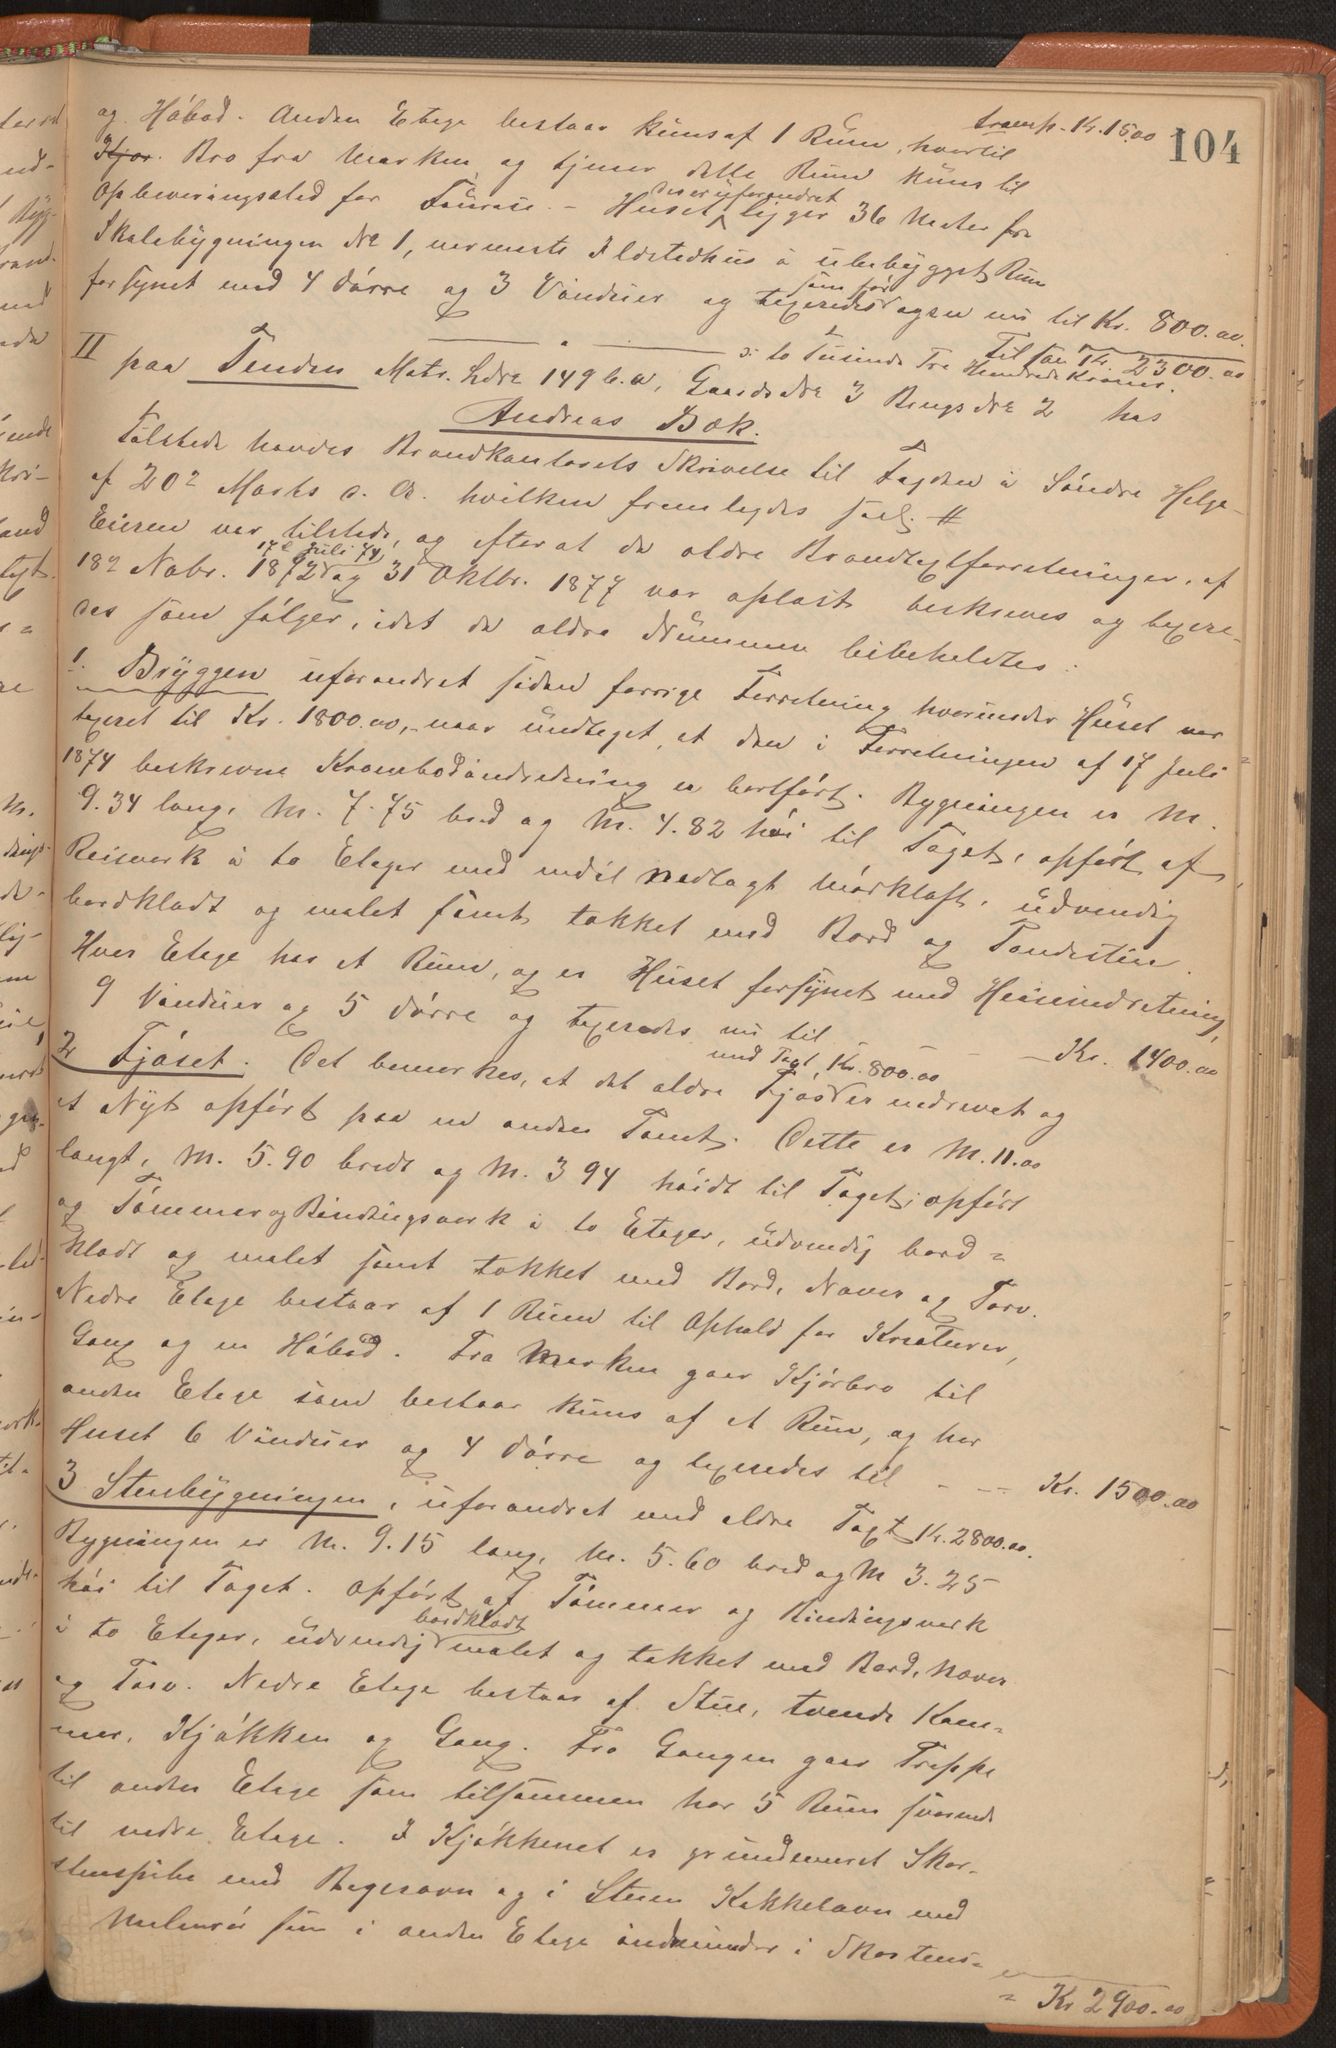 transp. Kr. 1500
104
og Høbod. Anden Etage bestaar kuns af 1 Rum, hvortil
Kjør. Bro fra Marken, og tjener dette Rum kuns til
Opbevaringssted for Føurase. - Huset ligger 36 Meter fra
Skolebygningen No 1, nærmeste Ildstedhus i ubebygget Rum
forsynet med 4 Dørre og 3 Vinduer og taxeredes som før ogsaa nu til Kr. 800.00.
Til sam Kr. 2300.00
ɔ: to Tusinde Tre Hundrede Kroner.
II paa Tenden Matr. Ldre 149 b.a, Gaards No 3 Brugs No 2 har
Andreas Bæk.
Tilstede havdes Brandkontorets Skrivelse til Fogden i Søndre Helge-
af 20de Marts d. A. hvilken fremlagdes saal. #
Eieren var tilstede, og efterat de ældre Brandtaxtforretninger, af
18de Novbr. 1872 17de Juli 74 og 31 Oktbr. 1877 var oplæst beskreves og taxere-
des som følger, idet de ældre Nummere bibeholdtes:
1. Bryggen uforandret siden forrige Forretning hvorunder Huset var
taxeret til Kr. 1800.00, naar undtaget, at den i Forretningen af 17 Juli
1874 beskrevne Krambodindredning er bortført. Bygningen er M.
9.34 lang, M. 7.75 bred og M. 4.82 høi til Taget, opført af
Reisverk i to Etager med indil nedlagt Mørkloft, udvendig
bordklædt og malet samt tækket med Bord og Pandesten.
Hver Etage har et Rum, og er Huset forsynet med Heiseindretning,
9 Vinduer og 5 Dørre og taxeredes nu til - - Kr. 1400.00
2 Fjøset. Det bemærkes, at det ældre Fjøs med Taxt Kr. 800.00 er nedrevet og
et Nyt opført paa en anden Tomt. Dette er M. 11.00
langt, M. 5.90 bredt og M. 3 94 høidt til Taget, opført
og Tømmer og Bindingsverk i to Etager, udvendig bord=
klædt og malet samt tækket med Bord, Næver og Torv.
Nedre Etage bestaar af 1 Rum til Ophold for Kreaturer,
Gang og en Høbod. Fra Marken gaar Kjørbro til
anden Etage som bestaar kuns af et Rum, og har
Huset 6 Vinduer og 4 Dørre og taxeredes til - - - Kr. 1500.00
3 Stuebygningen, uforandret med ældre Taxt Kr. 2800.00.
Bygningen er M. 9.15 lang, M. 5.60 bred og M 3.25
høi til Taget. Opført af Tømmer og Bindingsverk
i to Etager, udvendig bordklædt malet og tækket med Bord, Næver
og Torv. Nedre Etage bestaar af Stue, tvende Kam=
mer, Kjøkken og Gang. Fra Gangen gaar Trappe
til anden Etage som tilsammen har 5 Rum svarende
til nedre Etage. I Kjøkkenet er grundmuret Skor-
stenspibe med Bagerovn og i Stuen Kakkelovn med
som i anden Etage indmunder i Skorstens=
= Kr 2900.00